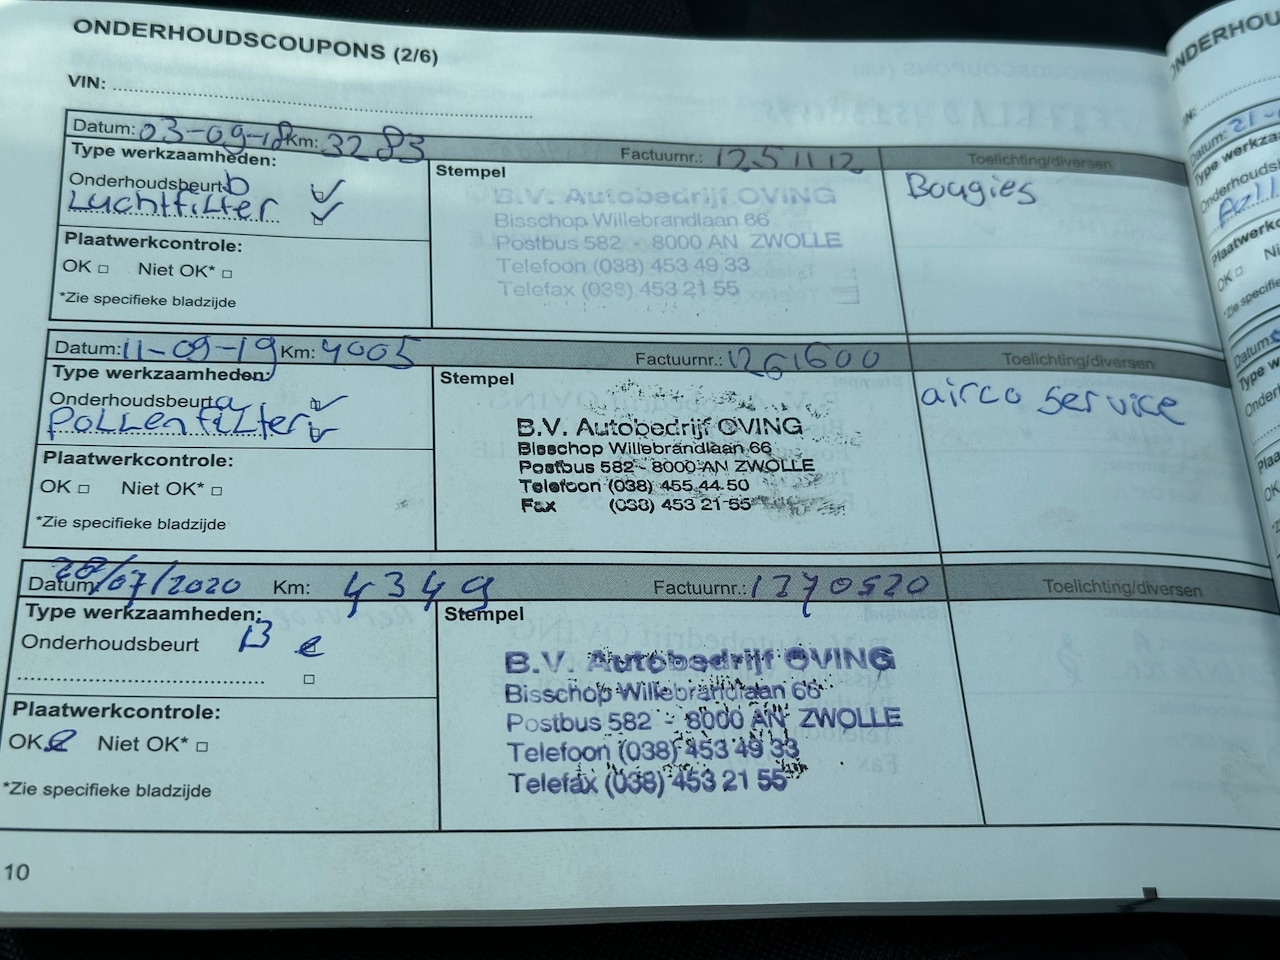 ONDERHOUDSCOUPONS (2/6)
VIN:
Datum: 03-09-18 Km: 3283 Factuurnr.: 1251112 Toelichting/diversen
Type werkzaamheden:
Stempel
Bougies
Onderhoudsbeurt b
Luchtfilter
B.V. Autobedrijf OVING
Bisschop Willebrandlaan 66
Postbus 582 - 8000 AN ZWOLLE
Telefoon (038) 453 49 33
Telefax (038) 453 21 55
Plaatwerkcontrole:
OK Niet OK*
*Zie specifieke bladzijde
Datum: 11-09-19 Km: 4005 Factuurnr.: 1261600 Toelichting/diversen
Type werkzaamheden:
Stempel
airco service
Onderhoudsbeurt a
Pollenfilter
B.V. Autobedrijf OVING
Bisschop Willebrandlaan 66
Postbus 582 - 8000 AN ZWOLLE
Telefoon (038) 455.44.50
Fax (038) 453 21 55
Plaatwerkcontrole:
OK Niet OK*
*Zie specifieke bladzijde
Datum: 28/07/2020 Km: 4349 Factuurnr.: 1270520 Toelichting/diversen
Type werkzaamheden:
Stempel
Onderhoudsbeurt B
B.V. Autobedrijf OVING
Bisschop Willebrandlaan 66
Postbus 582 - 8000 AN ZWOLLE
Telefoon (038) 453 49 33
Telefax (038) 453 21 55
Plaatwerkcontrole:
OK Niet OK*
*Zie specifieke bladzijde
10